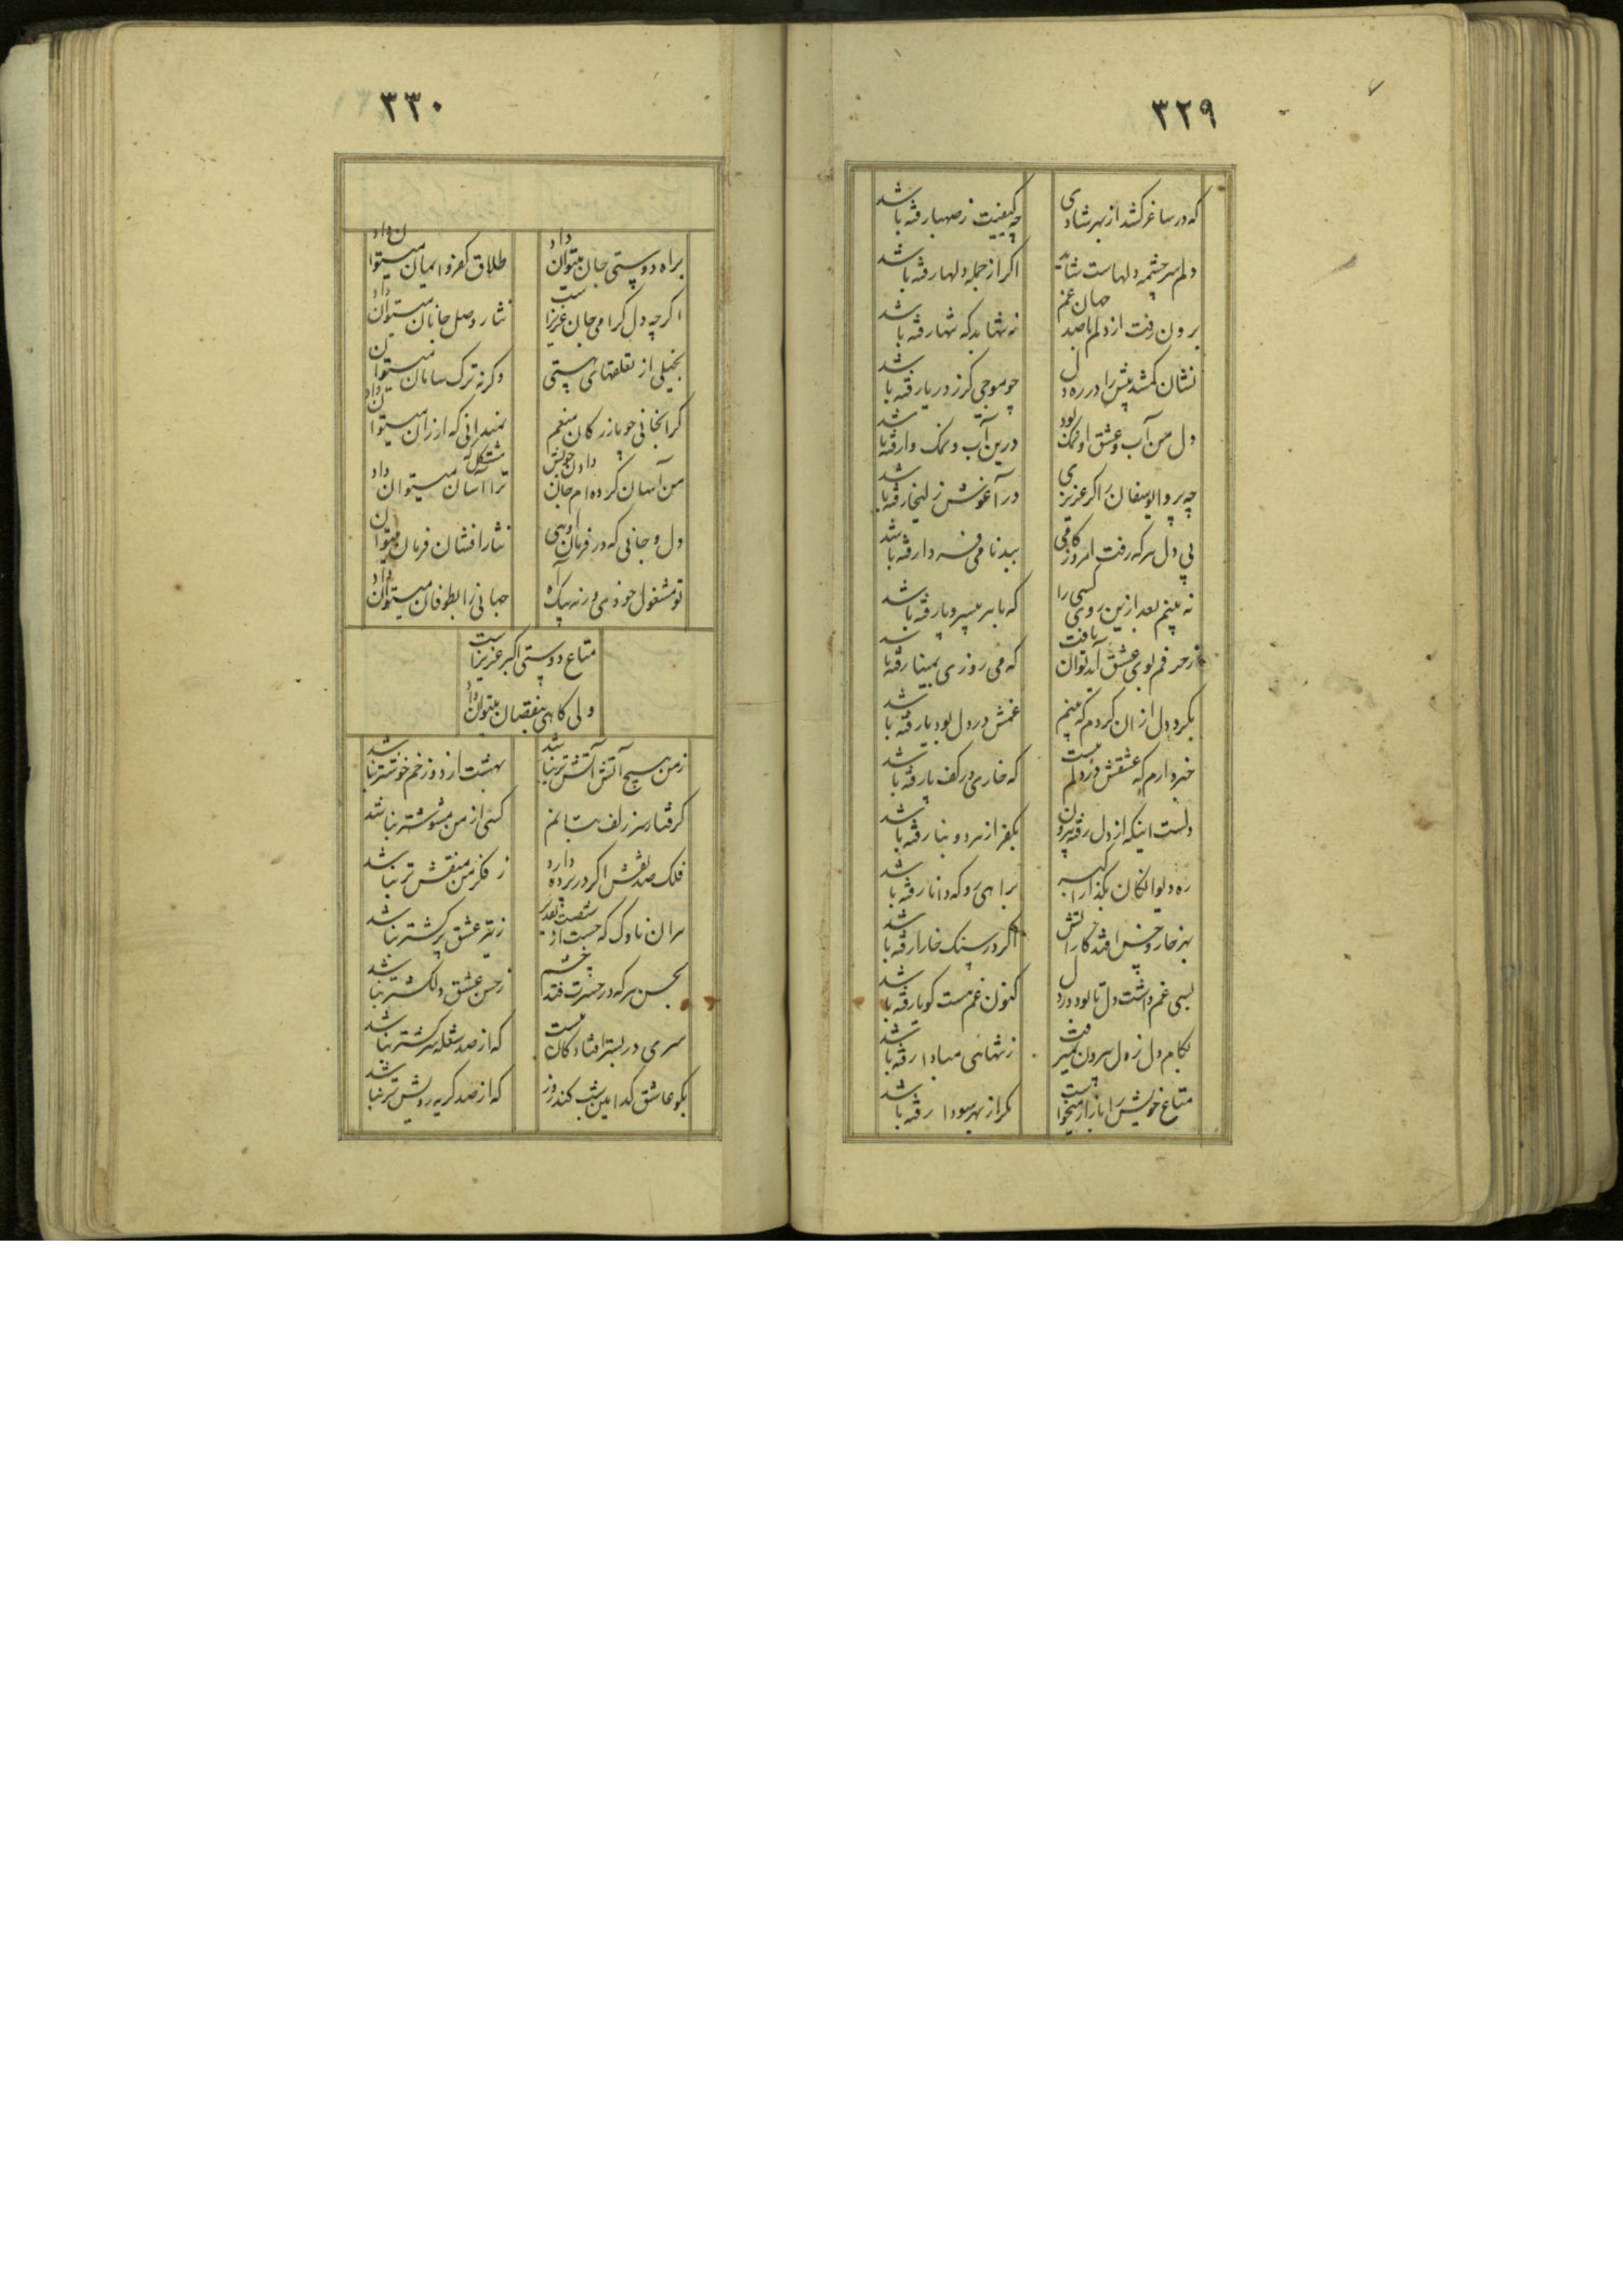 ٣٢٩
که در ساغر کشد از بهر شادی
چه کیفیت ز صهبا رفته باشد
دلم سرچشمه دلهاست شاید
اگر از جمله دلها رفته باشد
برون رفت از دلم با صد جهان غم
نه تنها بد که تنها رفته باشد
نشان گمشدنش را در ره دل
چو موجی کز دریا رفته باشد
دل من آب و عشق او نمک بود
درین آب و نمک وا رفته باشد
چه پروا یوسفان را گر عزیزی
در آغوش زلیخا رفته باشد
پی دل هر که رفت امروز کامی
ببدنامی فردا رفته باشد
نه بینم بعد ازین روی کسی را
که با هر بیسروپا رفته باشد
ز حرفم بوی عشق آید توان یافت
که می روزی بمینا رفته باشد
بگرد دل از ان گردم که بینم
غمش در دل بود یا رفته باشد
خبر دارم که عشقش در دلم نیست
که خاری در کف پا رفته باشد
دلست اینکه از دل رفته بیرون
بکفر از هر دو بنا رفته باشد
ره دیوانگان بگذار
براهی رو که دانا رفته باشد
بهر خار و خس افتد کار آتش
اگر در سنگ خارا رفته باشد
بسی غم داشت دل تا بود در دل
کنون غم هست کو یا رفته باشد
بکام دل ز دل بیرون نمیرفت
ز تنهائی مبادا رفته باشد
متاع خویش را بازار میخواست
مگر از بهر سودا رفته باشد
٣٣٠
براه دوستی جان میتوان داد
طلاق کفر و ایمان میتوان داد
اگر چه دل گرامی جان عزیزاست
نثار وصل جانان میتوان داد
بخیلی از تعلقهای هستی
وگرنه ترک سامان میتوان
گرانجانی چو بازرگان منعم
نمیدانی که ارزان میتوان داد
من آسان کرده‌ام جان دادن خویش
ترا آسان مشکل که میتوان داد
دل و جانی که در فرمان اوئی
نثار افشان فرمان میتوان
تو مشغول خودی ورنه بیک آه
جهانی را بطوفان میتوان داد
متاع دوستی اکبر عزیزاست
ولی گاهی بنقصان میتوان داد
ز من هیچ آتش آتشتر نباشد
بهشت از دوزخم خوشتر نباشد
گرفتار سر زلف بتانم
کسی از من مشوشتر نباشد
فلک صد نقش اگر در پرده دارد
ز فکر من منقشتر نباشد
هر ان ناوک که جست از
ز تیر عشق پرکشتر نباشد
بحسن هر که در حسرت فتد چشم
ز حسن عشق دلکشتر نباشد
سری در بستر افتادگان نیست
که از صد شعله سرکشتر نباشد
بگو عاشق کدامین شب کند روز
که از صد گریه رویش تر نباشد